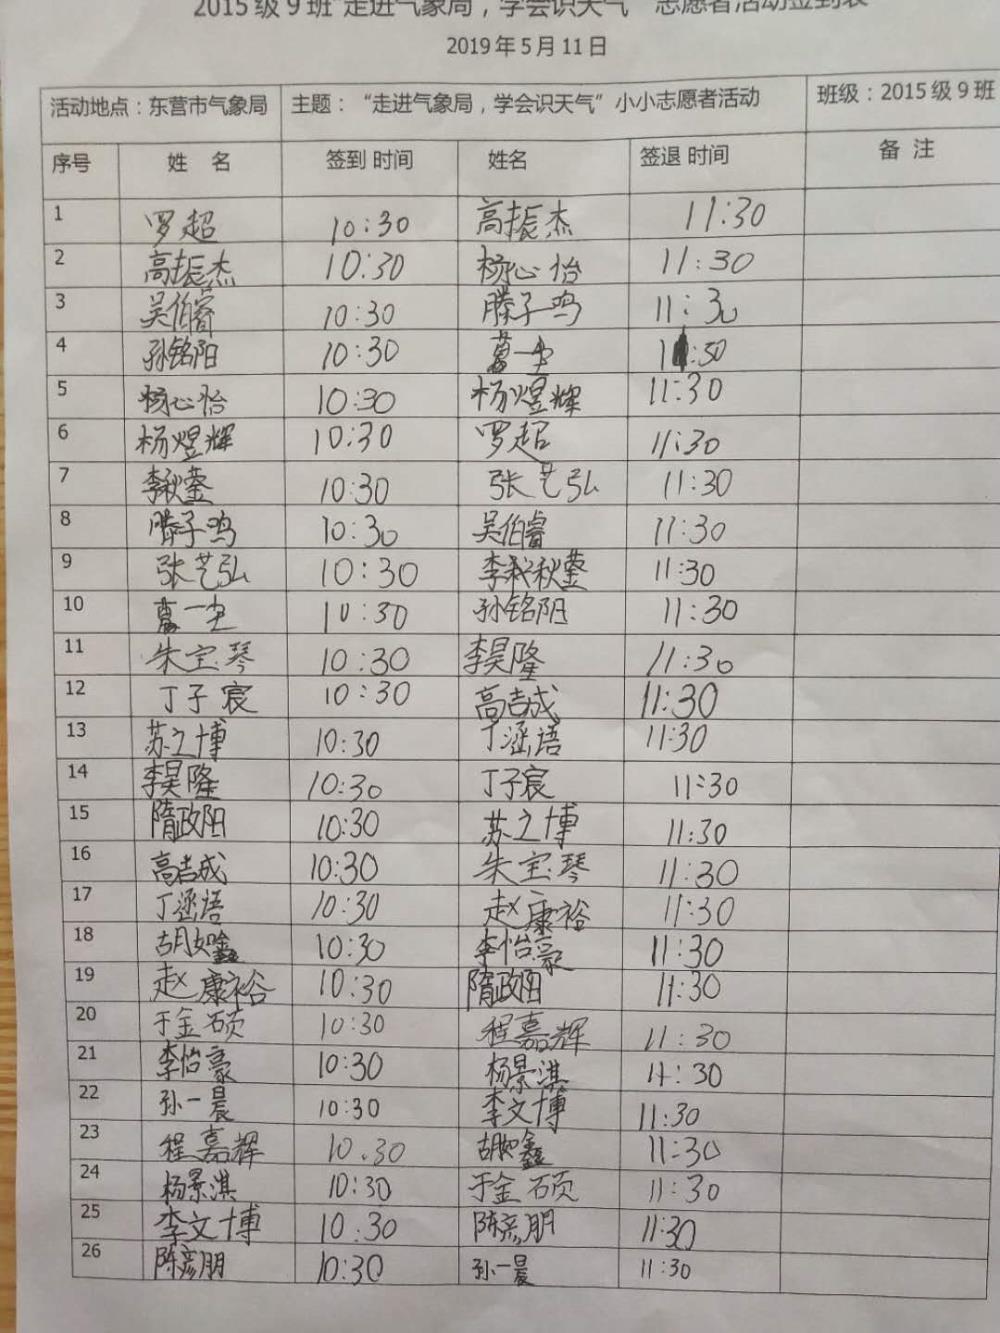 2015级9班"走进气象局，学会识天气" 志愿者活动签到表
2019年5月11日
活动地点：东营市气象局 主题：“走进气象局，学会识天气”小小志愿者活动 班级：2015级9班
序号 姓 名 签到 时间 姓名 签退 时间 备 注
1 罗超 10:30 高振杰 11:30
2 高振杰 10:30 杨心怡 11:30
3 吴伯睿 10:30 滕子鸣 11:30
4 孙铭阳 10:30 葛一尘
5 杨心怡 10:30 杨煜辉 11:30
6 杨煜辉 10:30 罗超 11:30
7 李秋蓥 10:30 张艺弘 11:30
8 滕子鸣 10:30 吴伯睿 11:30
9 张艺弘 10:30 李秋蓥 11:30
10 葛一尘 10:30 孙铭阳 11:30
11 朱宝琴 10:30 李昊隆 11:30
12 丁子宸 10:30 高吉成 11:30
13 苏之博 10:30 丁涵语 11:30
14 李昊隆 10:30 丁子宸 11:30
15 隋政阳 10:30 苏之博 11:30
16 高吉成 10:30 朱宝琴 11:30
17 丁涵语 10:30 赵康裕 11:30
18 胡如鑫 10:30 李怡豪 11:30
19 赵康裕 10:30 隋政阳 11:30
20 于金硕 10:30 程嘉辉 11:30
21 李怡豪 10:30 杨景淇 11:30
22 孙一晨 10:30 李文博 11:30
23 程嘉辉 10.30 胡如鑫 11:30
24 杨景淇 10:30 于金硕 11:30
25 李文博 10:30 陈彦朋 11:30
26 陈彦朋 10:30 孙一晨 11:30